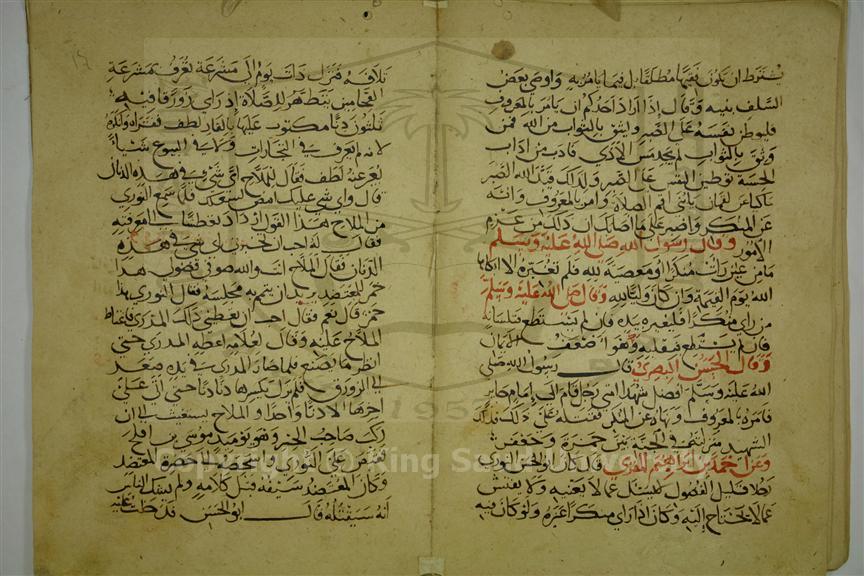 يشترط ان يكون فقيها مطلقا بل فيما يامر به واوصى بعض
السلف بنيه وقال اذا اراد احدكم ان يامر بالمعروف
فليوطن نفسه على الصبر وليثق بالثواب من الله فمن
وثق بالثواب لم يجد مس الاذى فاذن من اداب
الحسبة توطين النفس على الصبر ولذلك قرن الله الصبر
حاكيا عن لقمان يا بني اقم الصلاة وامر بالمعروف وانه
عن المنكر واصبر على ما اصابك ان ذلك من عزم
الامور وقال رسول الله صلى الله عليه وسلم
ما من عين رات منكرا او معصية لله فلم تغيره الا ابكاها
الله يوم القيمة وان كان وليا لله وقال صلى الله عليه وسلم
من راى منكرا فليغيره بيده فان لم يستطع فبلسانه
فان لم يستطع فبقلبه وهو اضعف الايمان
وقال الحسن البصري قال رسول الله صلى
الله عليه وسلم افضل شهدا امتي رجل قام الى امام جاير
فامره بالمعروف ونهاه عن المنكر فقتله على ذلك فذلك
الشهيد منزلته في الجنة بين حمزة وجعفر
وعن احمد بن ابراهيم المقري قال كان ابو الحسن النوري
رجلا قليل الفضول لا يسئل عما لا يعنيه ولا يفتش
عما لا يحتاج اليه وكان اذا راى منكرا غيره ولو كان فيه
تلافه فنزل ذات يوم الى مشرعة تعرف بمشرعة
الفحامين يتطهر للصلاة اذ راى زورقا فيه
ثلثون دنا مكتوب عليها بالقار لطف فقراه وانكره
لانه لم يعرف في التجارات ولا في البيوع شيا
يعبر عنه بلطف فقال للملاح اي شي في هذه الدنان
قال واي شي عليك امض لشغلك فلما سمع النوري
من الملاح هذا القول ازداد تعطشا الى معرفته
فقال له احب ان تخبرني اي شي في هذه
الدنان فقال الملاح انت والله صوفي فضولي هذا
خمر للمعتضد يريد ان يتمم به مجلسه فقال النوري هذا
خمر قال نعم فقال احب ان تعطيني ذلك المدرى فاغتاظ
الملاح عليه وقال لغلامه اعطه المدرى حتى
انظر ما يصنع فلما صار المدرى في يده صعد
الى الزورق فلم يزل يكسرها دنا دنا حتى اتى على
اخرها الا دنا واحدا والملاح يستغيث الى ان
ركب صاحب الجسر وهو يوميذ موسى بن افلح
فقبض على النوري واشخصه الى حضرة المعتضد
وكان المعتضد سيفه قبل كلامه ولم يشك الناس
انه سيقتله قال ابو الحسن فدخلت عليه
Copyright © King Saud University
1957